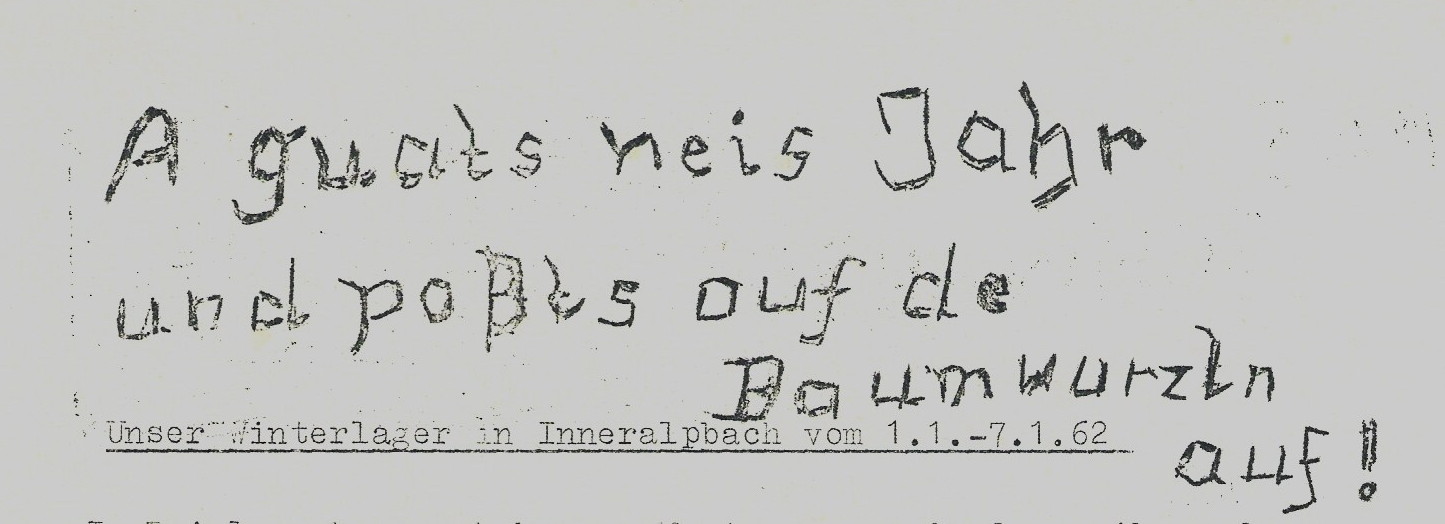 A guats neis Jahr
und poßts ouf de
Baumwurzln
Unser Winterlager in Inneralpbach vom 1.1.-7.1.62
auf!